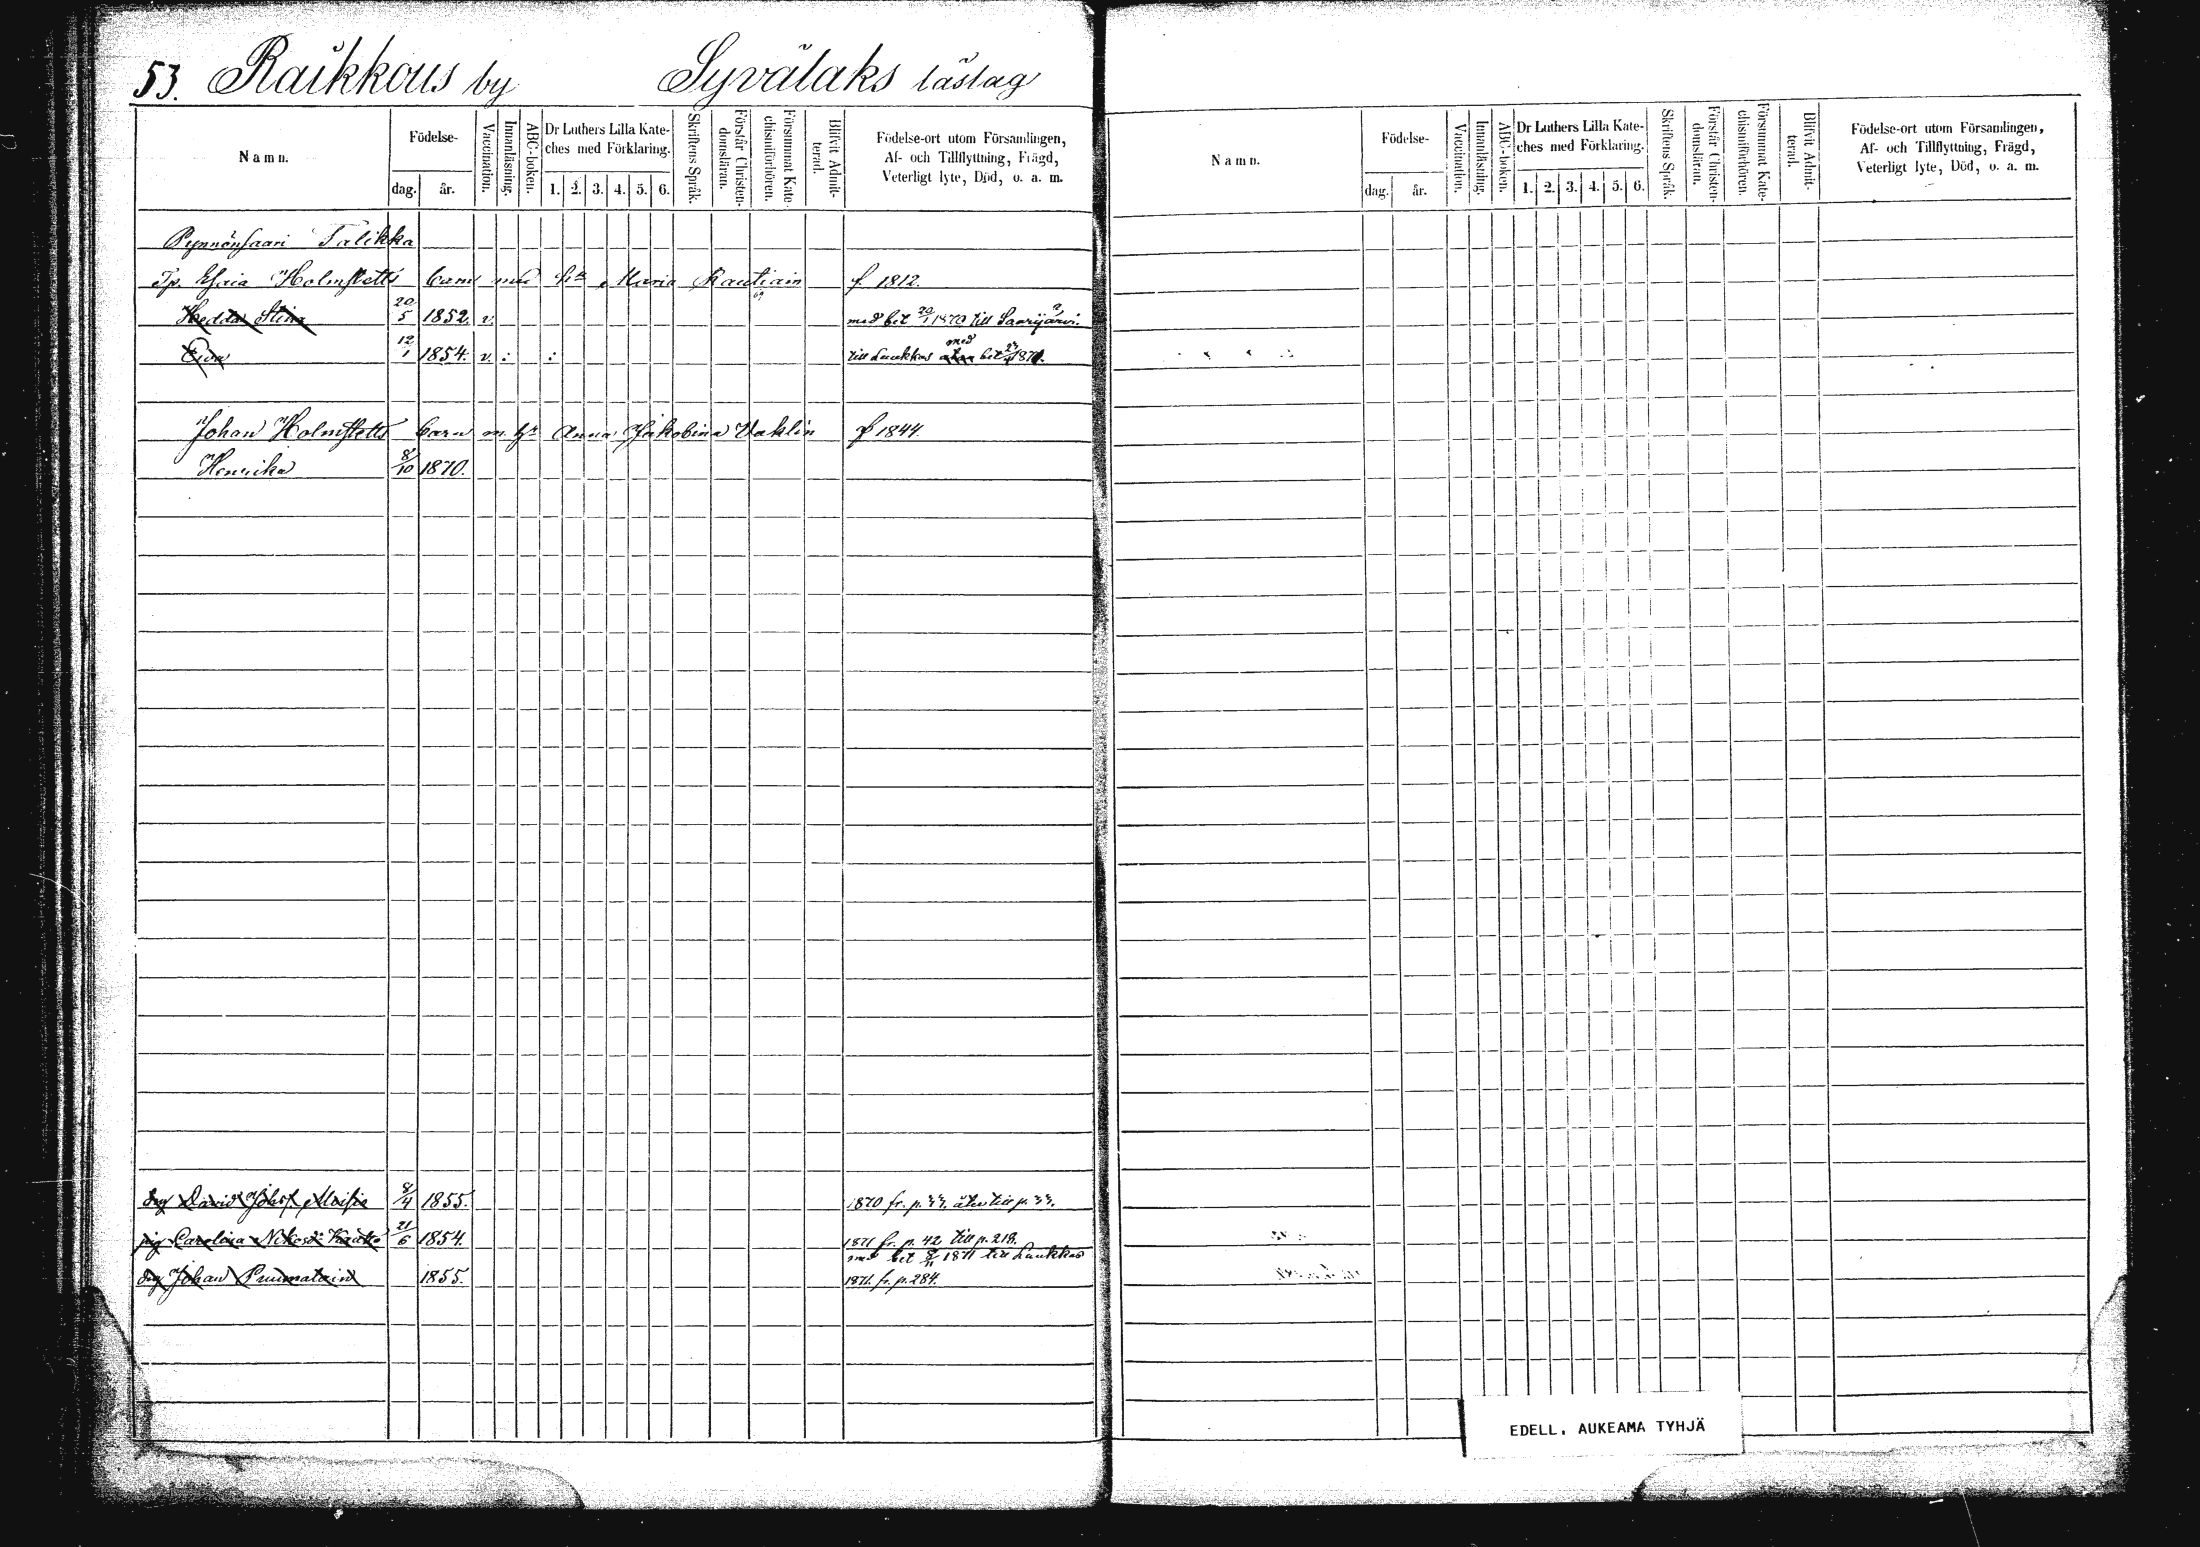 53. Raikkous by Syvälaks läslag
Namn. Födelse- dag. år. Vaccination. Innanläsning. ABC-boken. Dr Luthers Lilla Kateches med Förklaring. 1. 2. 3. 4. 5. 6. Skriftens Språk. Förstår Christendomsläran. Försummat Katechismiförhören. Blifvit Admitterad. Födelse-ort utom Församlingen, Af- och Tillflyttning, Frägd, Veterligt lyte, Död, o. a. m.
Pynnönsaari Talikka
Tp. Esaia Holmstetts barn med h:u Maria Rautiain f 1812.
Hedda Stina 20/5 1852. v. 69 med bet 20/1 1870 till Saarijärvi.
Eva 12/1 1854. v. : : till Laukkas med bet 1871.
Johan Holmstetts barn m. h:u Anna Jakobina Vaklin f 1844.
Henrika 8/10 1870.
drg David Johs:s. 8/4 1855. 1870 fr. p. 33. åter till p. 33.
pig Carolina 21/6 1854. 1871 fr. p. 42 till p. 218.
med bet 8/11 1871 till Laukkas
drg Johan Puumalain 1855. 1871. fr. p. 284.
Namn. Födelse- dag. år. Vaccination. Innanläsning. ABC-boken. Dr Luthers Lilla Kateches med Förklaring. 1. 2. 3. 4. 5. 6. Skriftens Språk. Förstår Christendomsläran. Försummat Katechismiförhören. Blifvit Admitterad. Födelse-ort utom Församlingen, Af- och Tillflyttning, Frägd, Veterligt lyte, Död, o. a. m.
EDELL. AUKEAMA TYHJÄ